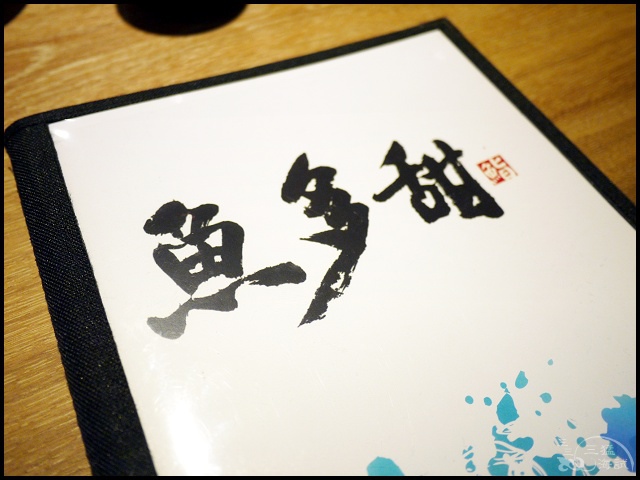 魚多甜